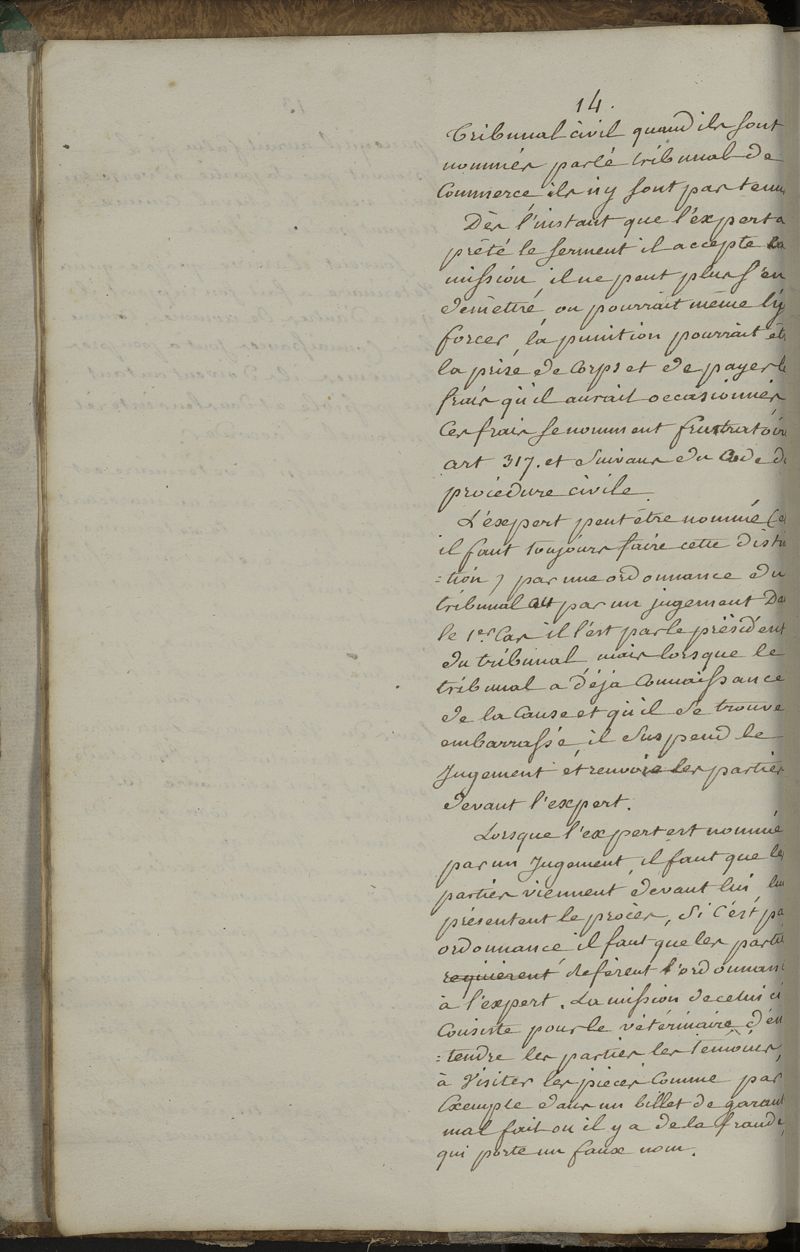 14.
Tribunal civil quand ils sont
nommés par le tribunal de
Commerce, ils n'y sont pas tenu
Dès l'instant que l'expert a
prêté le serment il accepte la
mission, il ne peut plus s'en
démettre, on pourrait même l'y
forcer, la punition pourrait êt
la prise de Corps et de payer l
frais qu'il aurait occasionnés,
Ces frais se nomment frustratoir
art 317. et suivans du Code d
procédure civile.
L'expert peut être nommé (e
il faut toujours faire cette distin
=tion) par une ordonnance du
tribunal ou par un jugement Da
le 1er Cas il l'est par le président
du tribunal mais lorsque le
tribunal a déjà Connaissance
de la Cause et qu'il se trouve
embarrassé, il suspend le
Jugement et renvoie les parties
devant l'expert.
Lorsque l'expert est nommé
par un Jugement, il faut que le
parties viennent devant lui, lui
présentent le procès, Si C'est pa
ordonnance il faut que les parti
requierent déferent l'ordonnan
à l'expert. La mission de celui ci
Consiste pour le vétérinaire d'en
=tendre les parties les témoins,
à visiter les pièces Comme par
Exemple dans un billet de garant
mal fait ou il y a de la fraude,
qui porte un faux nom.